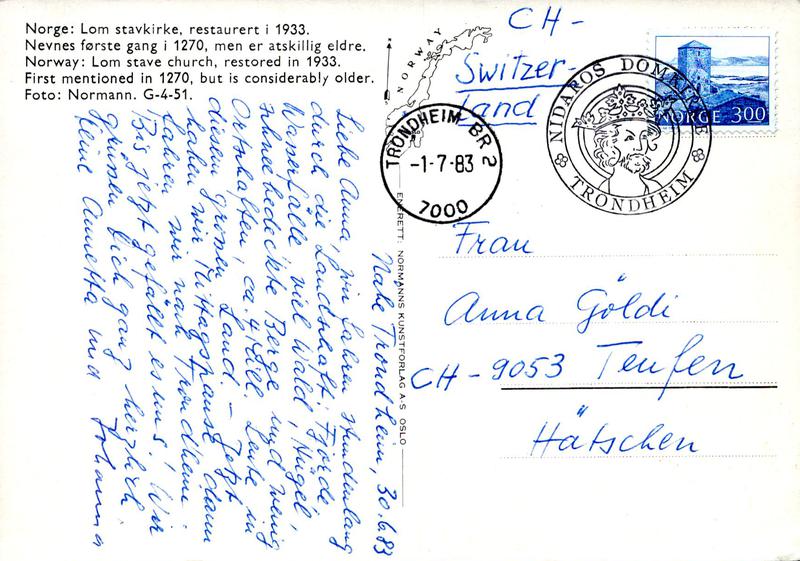 Norge: Lom stavkirke, restaurert i 1933.
Nevnes første gang i 1270, men er atskillig eldre.
Norway: Lom stave church, restored in 1933.
First mentioned in 1270, but is considerably older.
Foto: Normann. G-4-51.
NORWAY
ENERETT: NORMANNS KUNSTFORLAG A-S OSLO
Nähe Trondheim, 30.6.83
Liebe Anna, wir fahren stundenlang
durch die Landschaft: Fjorde,
Wasserfälle, viel Wald, Hügel,
schneebedeckte Berge und wenig
Ortschaften, ca. 4 Mill. Leute in
diesem grossen Land. – Jetzt
haben wir Mittagspause, dann
fahren wir nach Trondheim.
Bis jetzt gefällt es uns! Wir
grüssen Dich ganz herzlich
Annetta und Johannes
CH-
Switzer-
land
TRONDHEIM BR 2
-1-7-83
7000
NIDAROS DOMKIRKE
TRONDHEIM
NORGE 300
Frau
Anna Göldi
CH-9053 Teufen
Hätschen